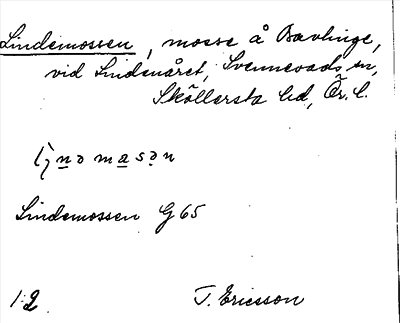 Lindemossen, mosse å Bavlinge,
vid Lindenåret, Svennevads sn,
Sköllersta hd, Ör. l.
Lindemossen G 65
1:2 T. Ericsson